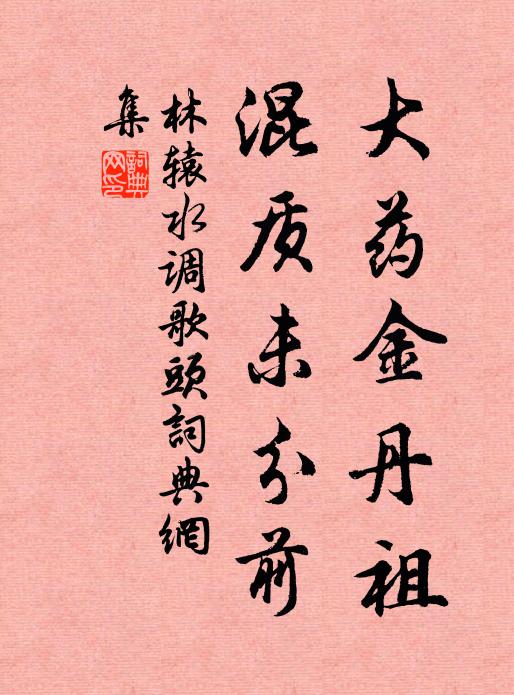 大药金丹祖
混质未分前
林辕水调歌头詞典網
集
詞典网印